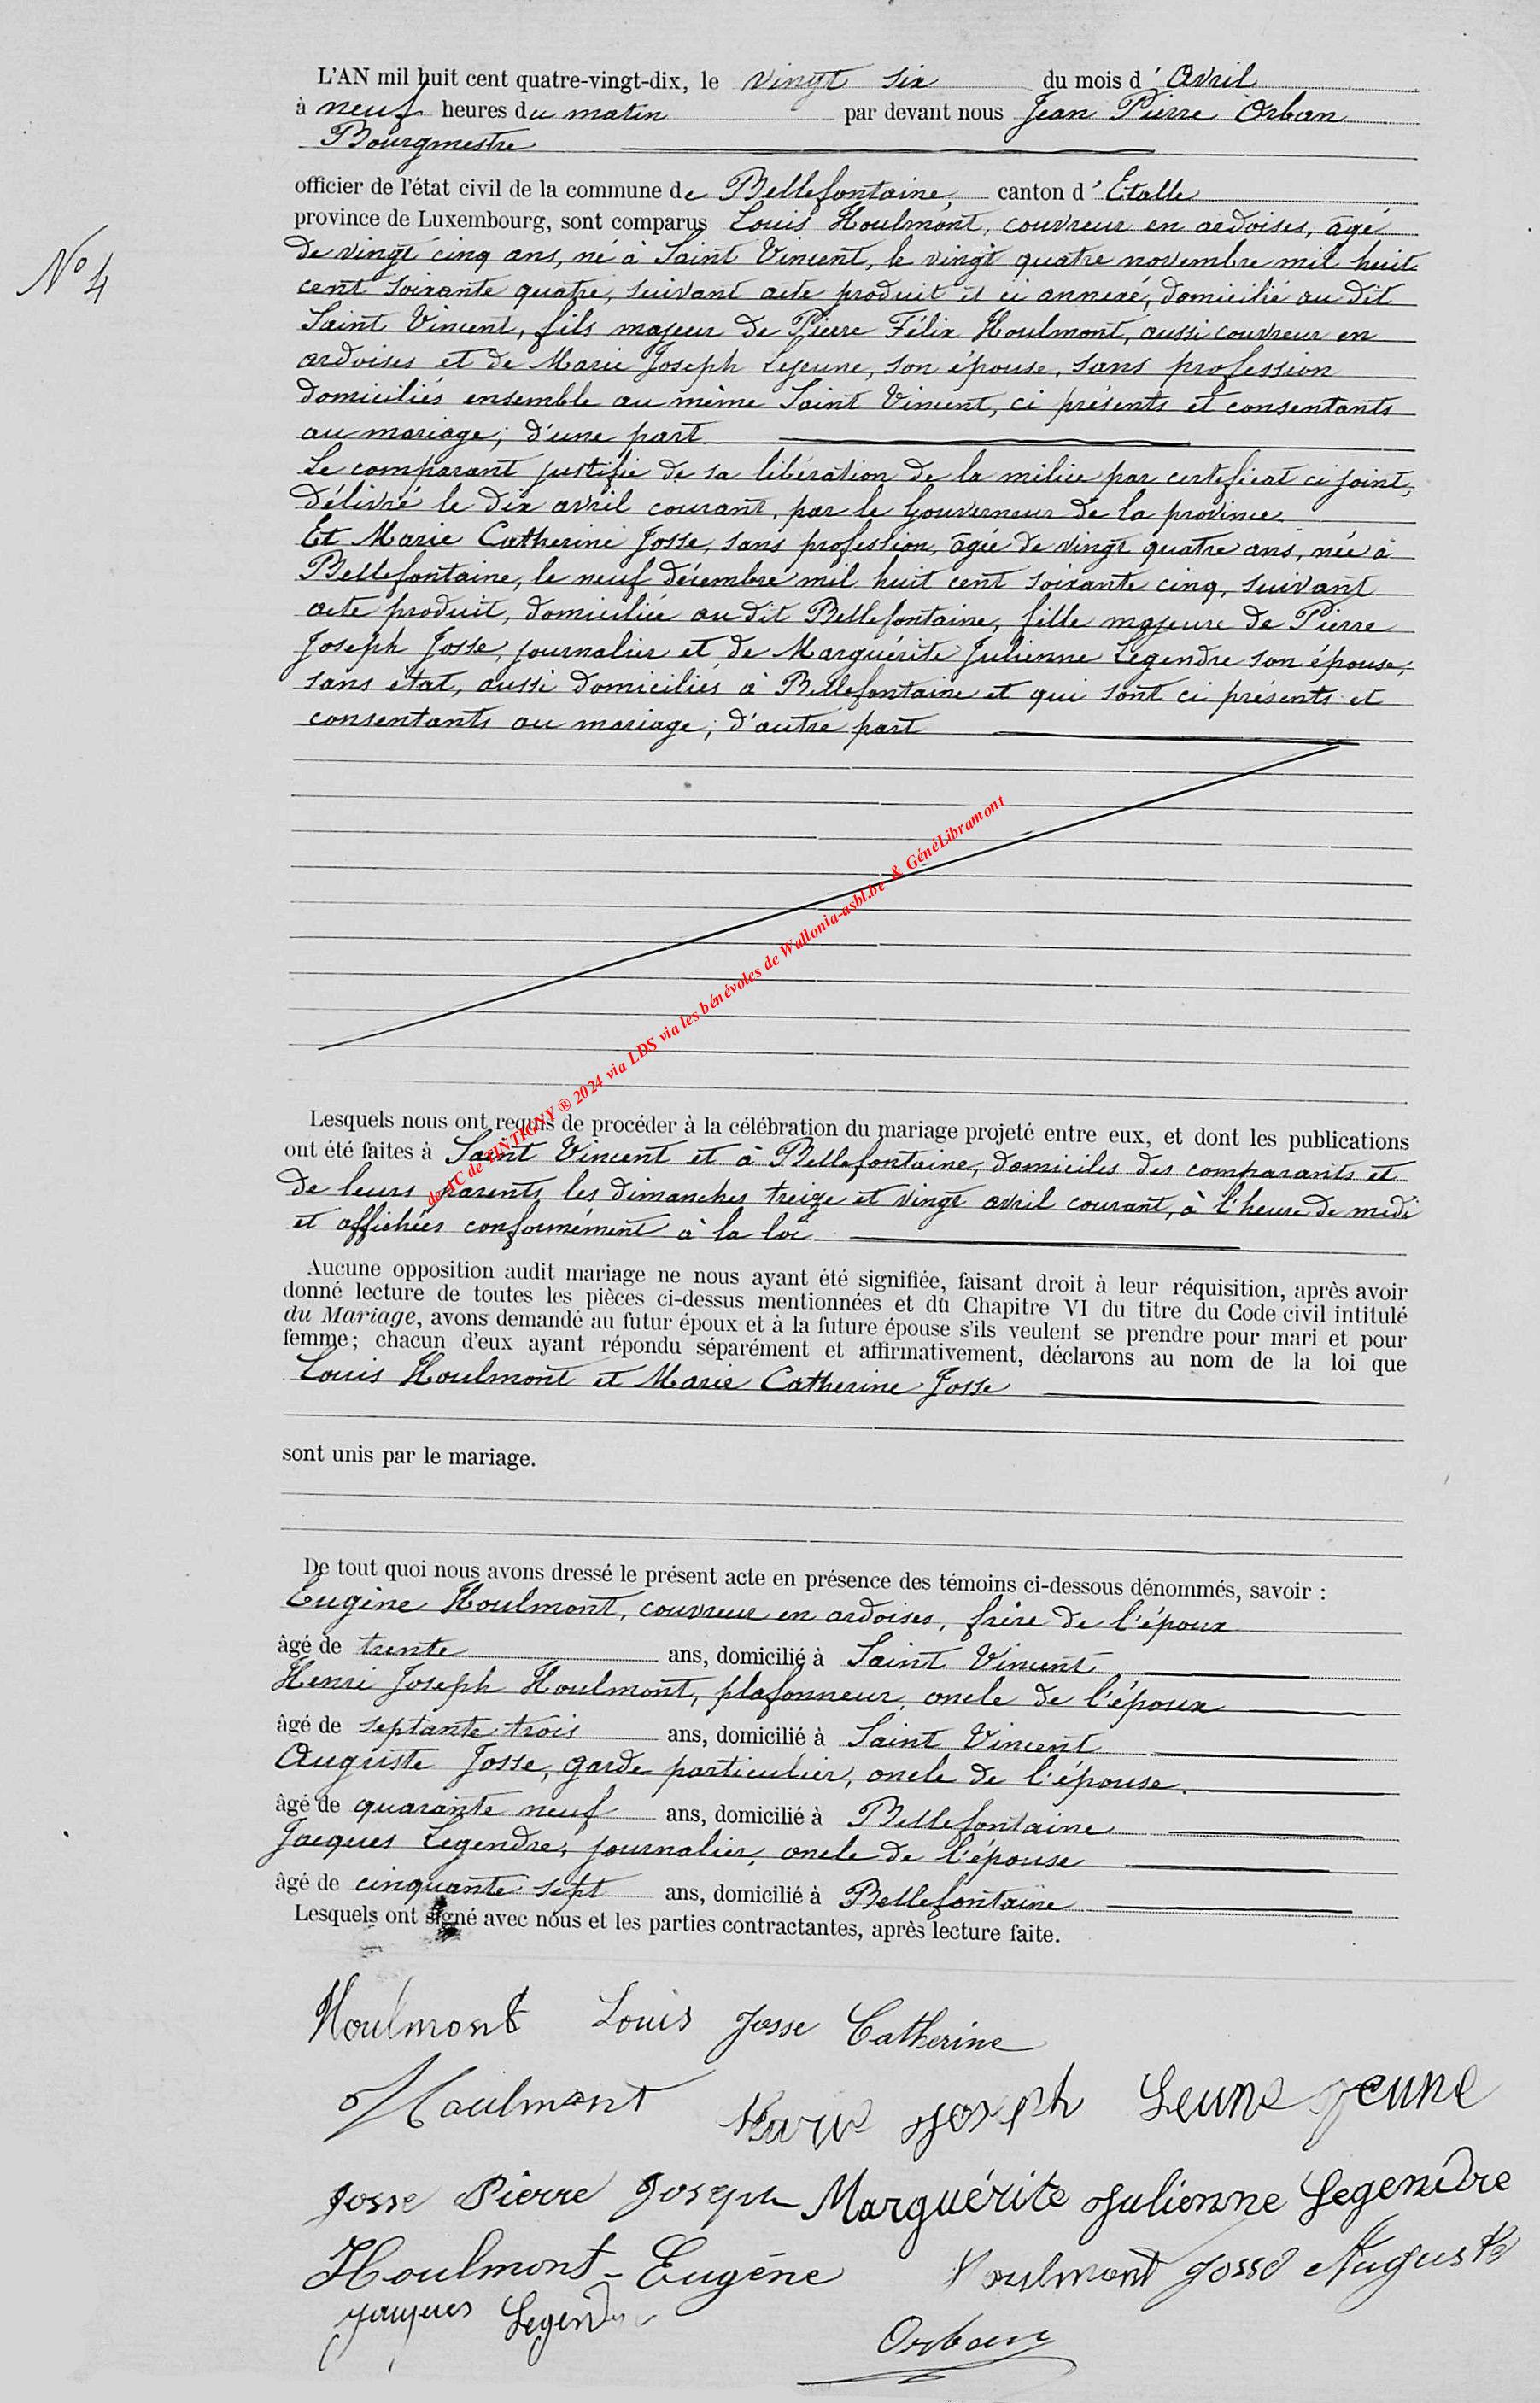 L'AN mil huit cent quatre-vingt-dix, le vingt six du mois d' Avril
à neuf heures du matin par devant nous Jean Pierre Orban
Bourgmestre
officier de l'état civil de la commune de Bellefontaine, canton d' Etalle
province de Luxembourg, sont comparus Louis Houlmont, couvreur en ardoises, âgé
N° 4
de vingt cinq ans, né à Saint Vincent, le vingt quatre novembre mil huit
cent soixante quatre, suivant acte produit et ci annexé, domicilié au dit
Saint Vincent, fils majeur de Pierre Félix Houlmont, aussi couvreur en
ardoises et de Marie Joseph Lejeune, son épouse, sans profession
domiciliés ensemble au même Saint Vincent, ci présents et consentants
au mariage; d'une part
Le comparant justifie de sa libération de la milice par certificat ci joint,
délivré le dix avril courant, par le Gouverneur de la province.
Et Marie Catherine Josse, sans profession, âgée de vingt quatre ans, née à
Bellefontaine, le neuf décembre mil huit cent soixante cinq, suivant
acte produit, domiciliée au dit Bellefontaine, fille majeure de Pierre
Joseph Josse, journalier et de Marguérite Julienne Legendre son épouse,
sans état, aussi domiciliés à Bellefontaine et qui sont ci présents et
consentants au mariage; d'autre part
de AC de TINTIGNY ® 2024 via LDS via les bénévoles de Wallonia-asbl.be & GénéLibramont
Lesquels nous ont requis de procéder à la célébration du mariage projeté entre eux, et dont les publications
ont été faites à Saint Vincent et à Bellefontaine, domiciles des comparants et
de leurs parents, les dimanches treize et vingt avril courant, à l'heure de midi
et affichées conformément à la loi.
Aucune opposition audit mariage ne nous ayant été signifiée, faisant droit à leur réquisition, après avoir
donné lecture de toutes les pièces ci-dessus mentionnées et du Chapitre VI du titre du Code civil intitulé
du Mariage, avons demandé au futur époux et à la future épouse s'ils veulent se prendre pour mari et pour
femme; chacun d'eux ayant répondu séparément et affirmativement, déclarons au nom de la loi que
Louis Houlmont et Marie Catherine Josse
sont unis par le mariage.
De tout quoi nous avons dressé le présent acte en présence des témoins ci-dessous dénommés, savoir :
Eugène Houlmont, couvreur en ardoises, frère de l'époux
âgé de trente ans, domicilié à Saint Vincent
Henri Joseph Houlmont, plafonneur, oncle de l'époux
âgé de septante trois ans, domicilié à Saint Vincent
Auguste Josse, garde particulier, oncle de l'épouse.
âgé de quarante neuf ans, domicilié à Bellefontaine
Jacques Legendre, journalier, oncle de l'épouse
âgé de cinquante sept ans, domicilié à Bellefontaine
Lesquels ont signé avec nous et les parties contractantes, après lecture faite.
Houlmont Louis Josse Catherine
Houlmont Marie Joseph Leune jeune
Josse Pierre Joseph Marguérite Julienne Legendre
Houlmont - Eugéne Houlmont Josse Auguste
Jacques Legendre
Orban